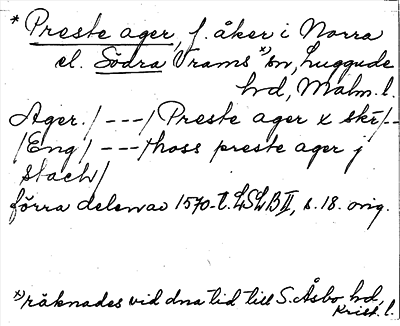 * Preste ager, f. åker i Norra
el. Södra Vrams x) sn, Luggude
hd, Malm. l.
Ager. / - - - / Preste ager x skr / - -
/ Eng / - - - / hoss preste ager j
stach /
förra delen av 1570-t. LSLB II, s. 18. orig.
x) räknades vid dna tid till S. Åsbo hd,
Krist. l.